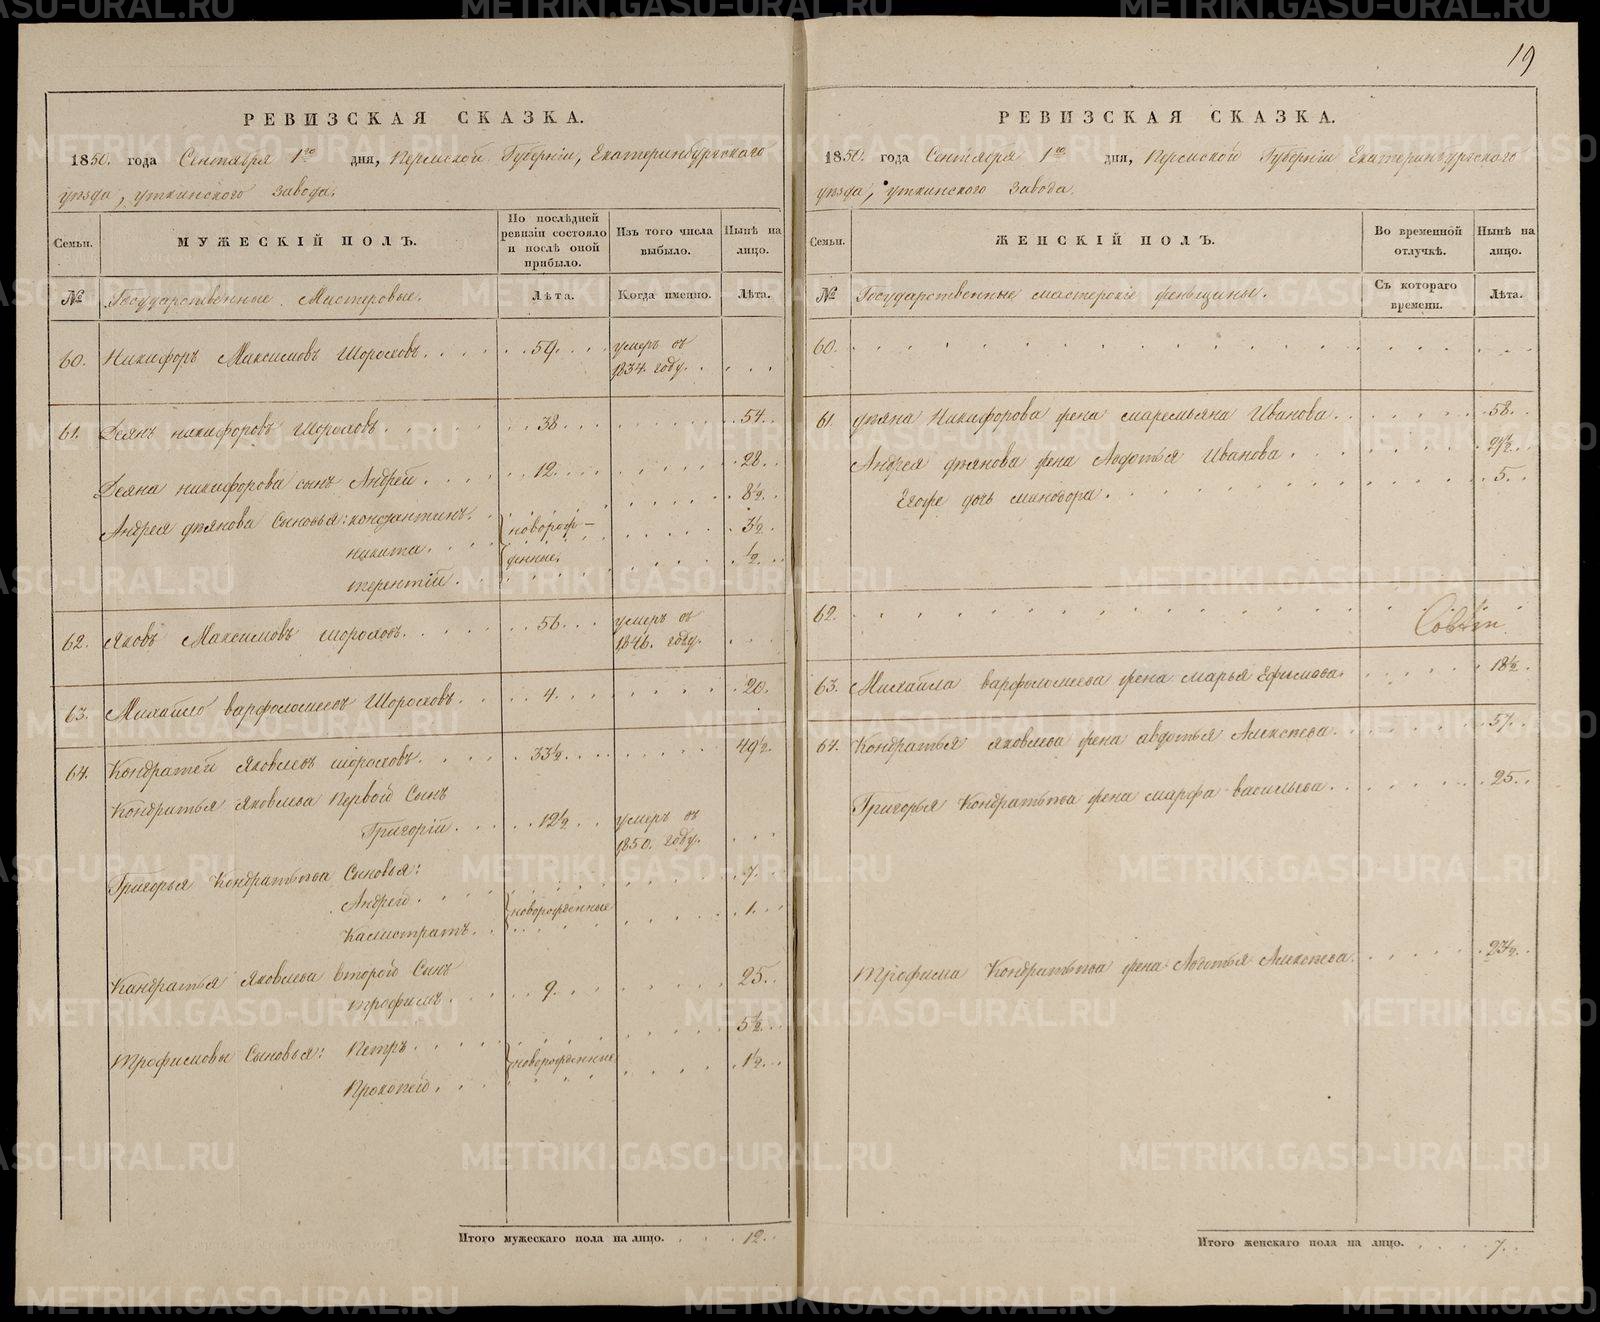 19
РЕВИЗСКАЯ СКАЗКА.
1850. года Сентября 1го дня, Пермской Губерніи, Екатеринбургскаго
уѣзда, уткинского завода.
Семьи.
МУЖЕСКІЙ ПОЛЪ.
По послѣдней ревизіи состояло и послѣ оной прибыло.
Изъ того числа выбыло.
Нынѣ на лицо.
№
Государственные Мастеровые.
Лѣта.
Когда именно.
Лѣта.
60. Никифоръ Максимовъ Шороховъ. 59. умеръ въ
1834. году.
61. Деянъ никифоровъ Шороховъ. 38. 54.
Деяна никифорова сынъ Андрей. 12. 28.
Андрея деянова Сыновья: константинъ. новорож- 8½.
никита. денные. 3½.
терентій. ½.
62. Яковъ Максимовъ шороховъ. 56. умеръ въ
1846. году.
63. Михайло варфоломеевъ Шороховъ. 4. 20.
64. Кондратей яковлевъ шороховъ. 33½. 49½.
Кондратья яковлева Первой Сынъ
Григорій. 12½. умеръ въ
1850. году.
Григорья Кондратьева Сыновья:
Андрей. новорожденные 7.
Калистратъ. 1.
Кандратья Яковлева второй Сынъ
трофимъ. 9. 25.
Трофимовы Сыновья: Петръ. новорожденные 5½.
Прокопей. 1½.
Итого мужескаго пола на лицо. 12.
РЕВИЗСКАЯ СКАЗКА.
1850. года Сентября 1го дня, Пермской Губерніи Екатеринбургского
уѣзда, уткинского завода.
Семьи.
ЖЕНСКІЙ ПОЛЪ.
Во временной отлучкѣ.
Нынѣ на лицо.
№
Государственные мастерскіе женьщины.
Съ котораго времени.
Лѣта.
60.
61. деяна Никифорова жена маремьяна Иванова. 58.
Андрея деянова жена Авдотья Иванова. 27½.
Егоже дочь минодора. 5.
62.
63. Михайла варфоломеева жена марья Ефимова. 18½.
64. Кондратья яковлева жена авдотья Алексеева. 57.
Григорья Кондратьева жена марфа васильева. 25.
трофима Кондратьева жена Авдотья Алексеева. 27½.
Итого женскаго пола на лицо. 7.
METRIKI.GASO-URAL.RU